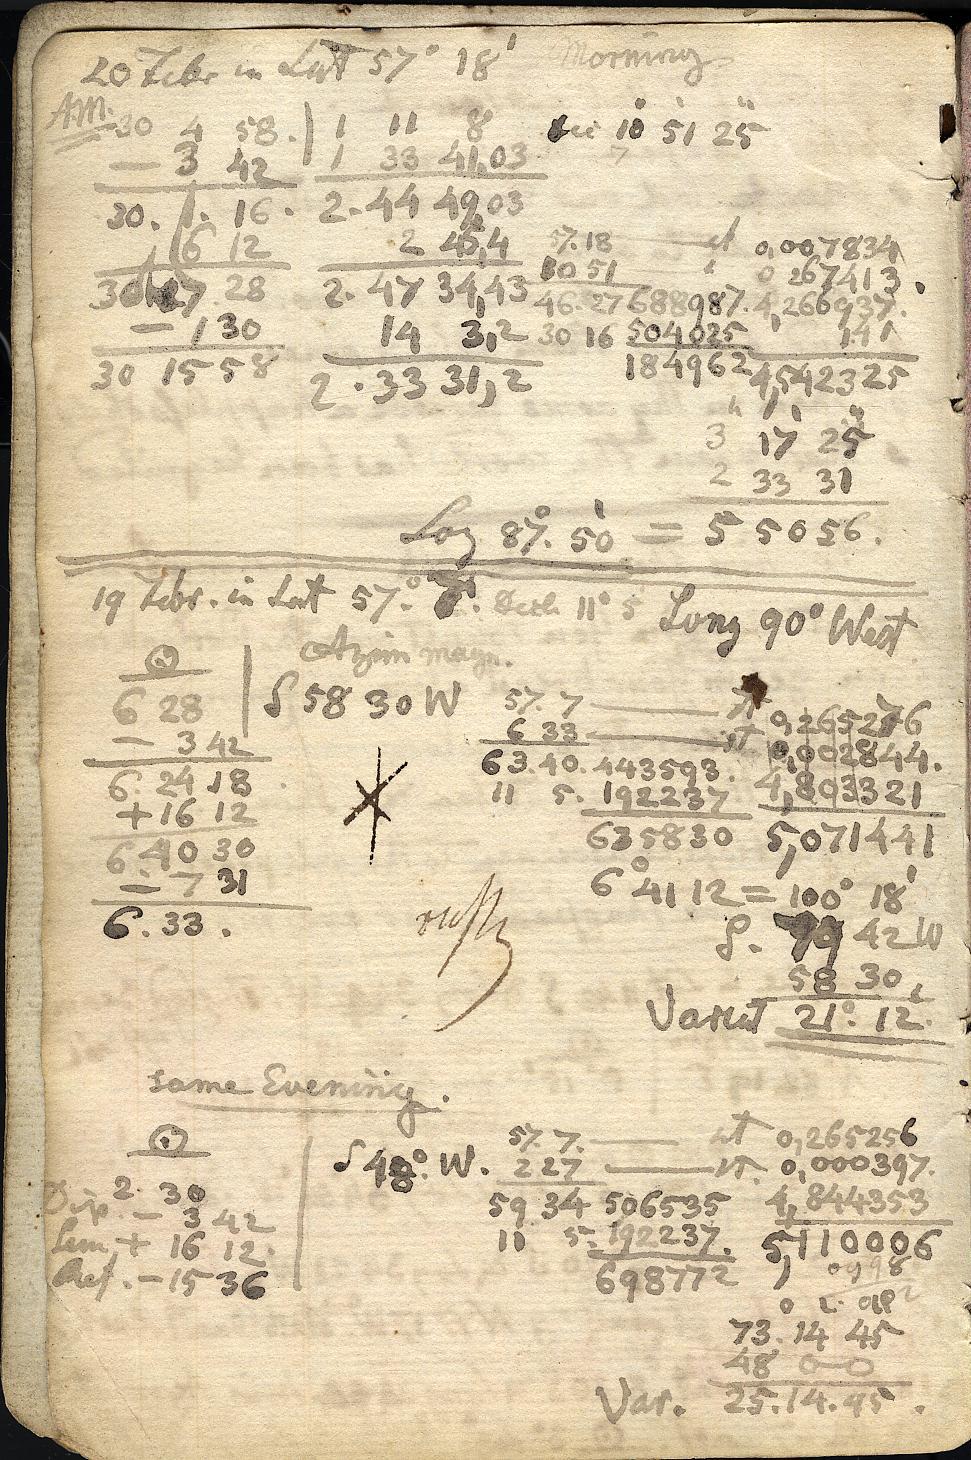 20 Febr in Lat 57° 18' Morning
AM.
30 4 58. 1 11 8 dec 10° 51' 25"
— 3 42 1 33 41,03
30. 1. 16. 2. 44 49,03
16 12 2 45,4 57.18 —— ct 0,007834
17 28 2. 47 34,43 10 51 0 267413.
— 1 30 14 3,2 46.27 688987. 4,266937.
30 15 58 2. 33 31,2 30 16 504025 141
184962 4,542325
3 17 25
2 33 31
Log 87°. 50' = 5 5056.
19 Febr. in Lat 57°. 7. Decli 11° 5 Long 90° West
☉ Azim magn.
6 28 S 58 30 W 57. 7 0,265276
— 3 42 6 33 —— st 0,002844.
6. 24 18 63. 40. 443593. 4,803321
+ 16 12 11 5. 192237
6. 40 30 635830 5,071441
— 7 31 6° 41 12 = 100° 18'
6. 33. S. 79 42 W
58 30
Variat 21°. 12.
same Evening.
☉ 57. 7. —— 0,265256
S 48° W. 2 27 —— 0,000397.
2. 30 59 34 506535 4,844353
Dip. — 3 42 11 5. 192237. 5,110006
Sem, + 16 12. 698772
Ref. — 15 36
73. 14 45
48 0 0
Var. 25. 14. 45.